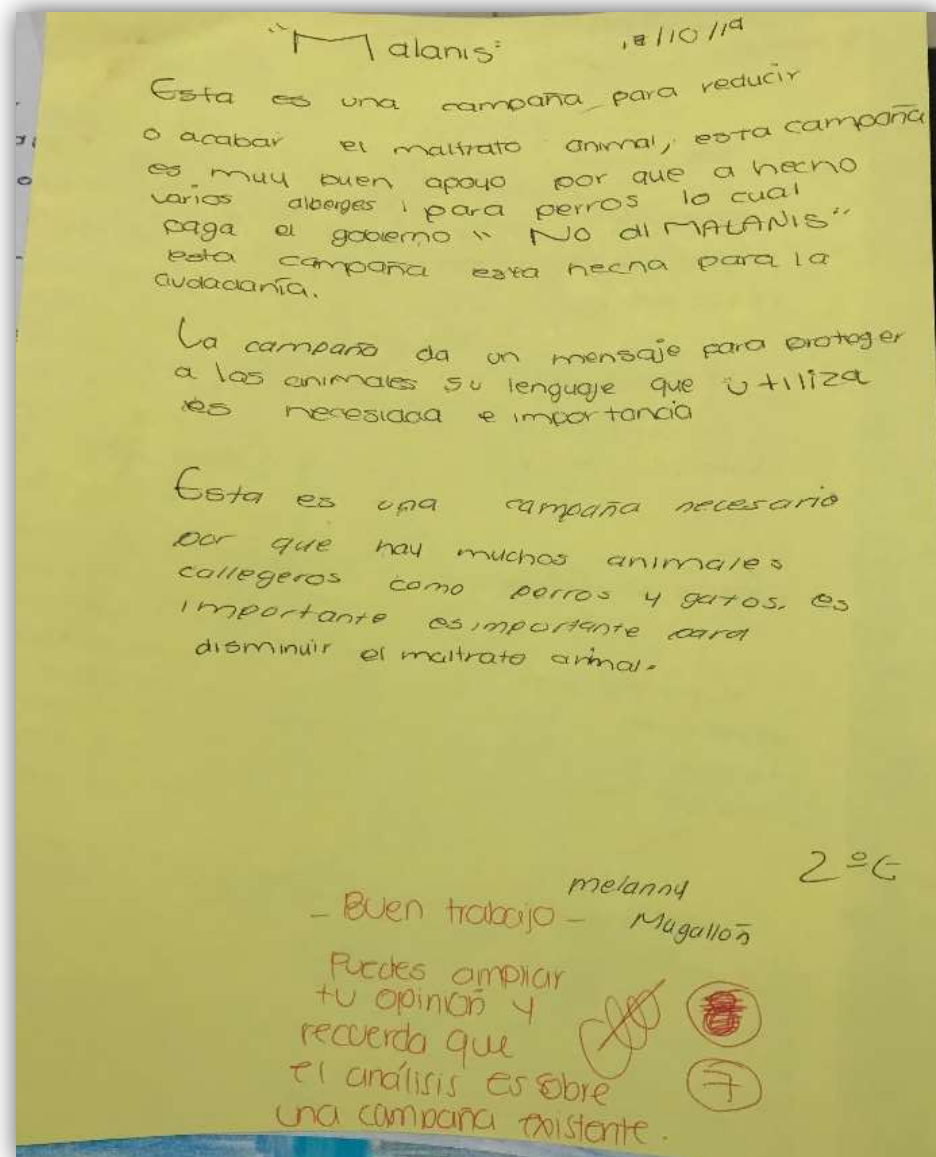 "Malanis"
/10/19
Esta es una campaña para reducir
o acabar el maltrato animal, esta campaña
es muy buen apoyo por que a hecho
varios alberges para perros lo cual
paga el gobierno " NO al MALANIS"
esta campaña esta hecha para la
ciudadanía.
La campaña da un mensaje para proteger
a los animales su lenguaje que utiliza
es necesidad e importancia
Esta es una campaña necesario
por que hay muchos animales
callegeros como perros y gatos. es
importante es importante para
disminuir el maltrato animal.
2º
melanny
Magallon
- Buen trabajo -
Puedes ampliar
tu opinión y
recuerda que
el análisis es sobre
una campaña existente.
7